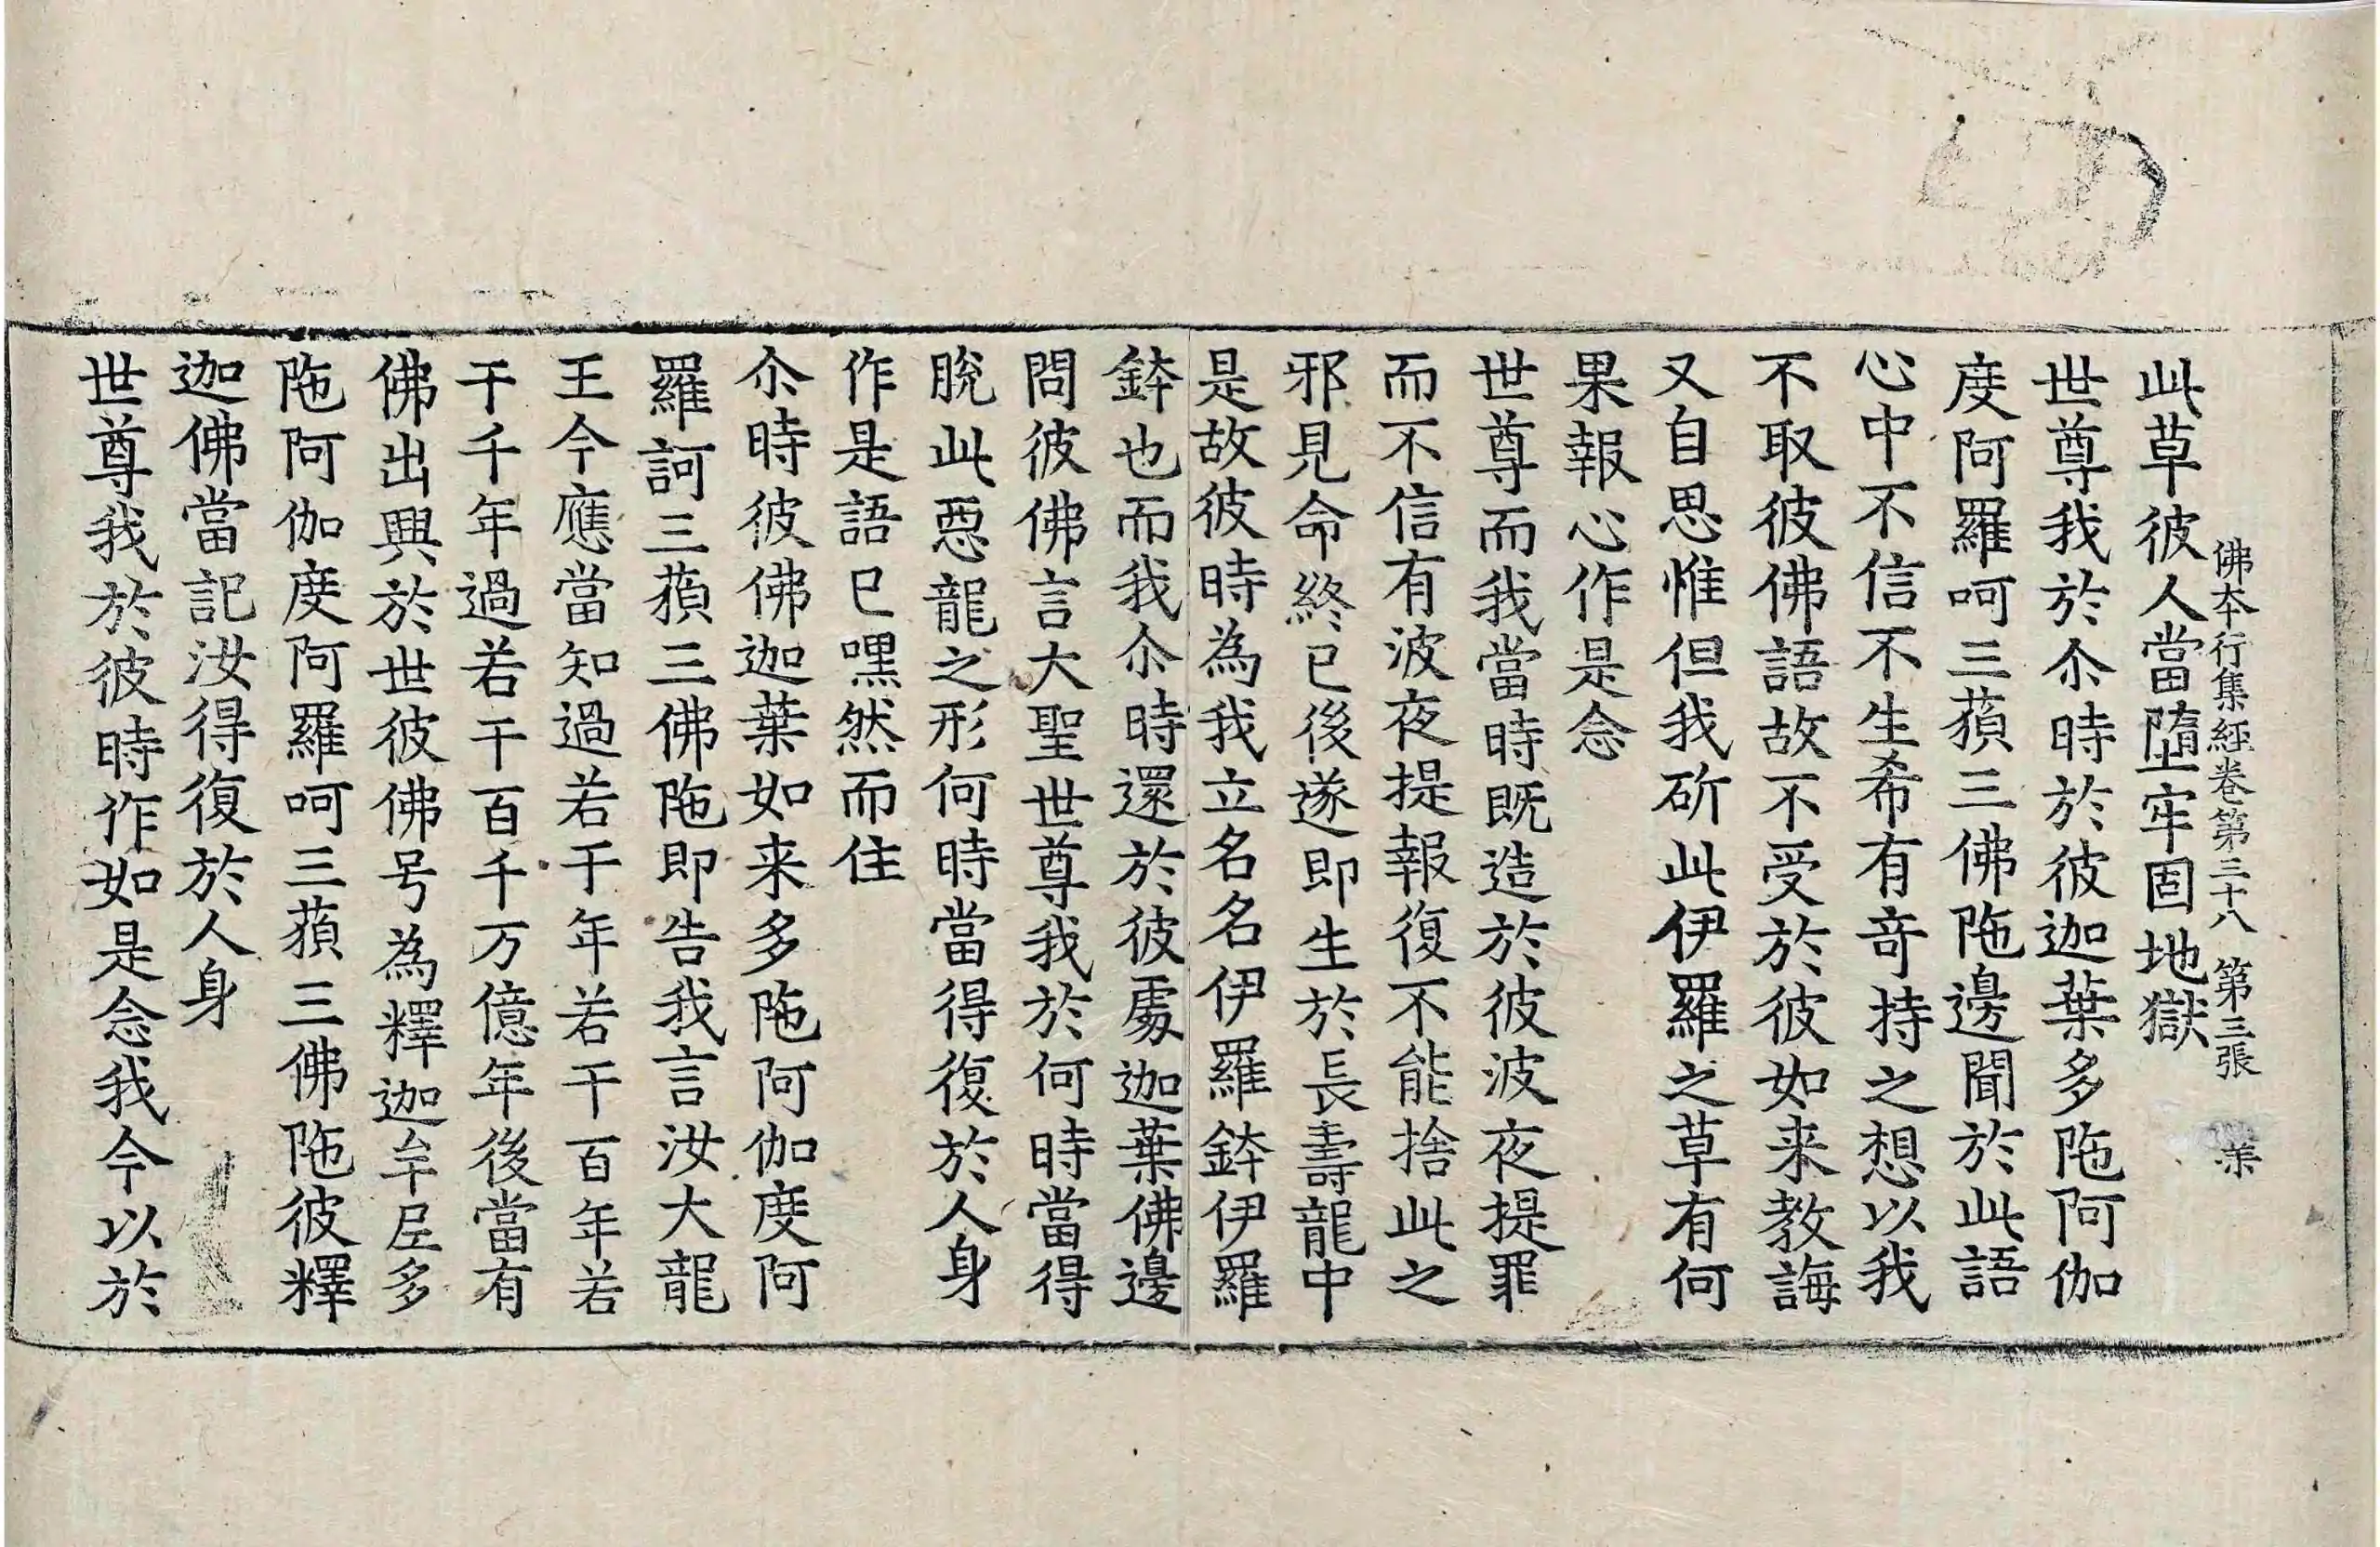 佛夲行集經卷第三十八 第三張
此草彼人當墮牢固地獄
世尊我於尒時於彼迦葉多陁阿伽
度阿羅呵三蘋三佛陁邊聞於此語
心中不信不生希有奇持之想以我
不取彼佛語故不受於彼如来教誨
又自思惟但我斫此伊羅之草有何
果報心作是念
世尊而我當時既造於彼波夜提罪
而不信有波夜提報復不能捨此之
邪見命終已後遂即生於長壽龍中
是故彼時為我立名名伊羅鉢伊羅
鉢也而我尒時還於彼處迦葉佛邊
問彼佛言大聖世尊我於何時當得
脫此惡龍之形何時當得復於人身
作是語已嘿然而住
尒時彼佛迦葉如来多陁阿伽度阿
羅訶三蘋三佛陁即告我言汝大龍
王今應當知過若干年若干百年若
干千年過若干百千万億年後當有
佛出興於世彼佛号為釋迦牟尼多
陁阿伽度阿羅呵三蘋三佛陁彼釋
迦佛當記汝得復於人身
世尊我於彼時作如是念我今以於